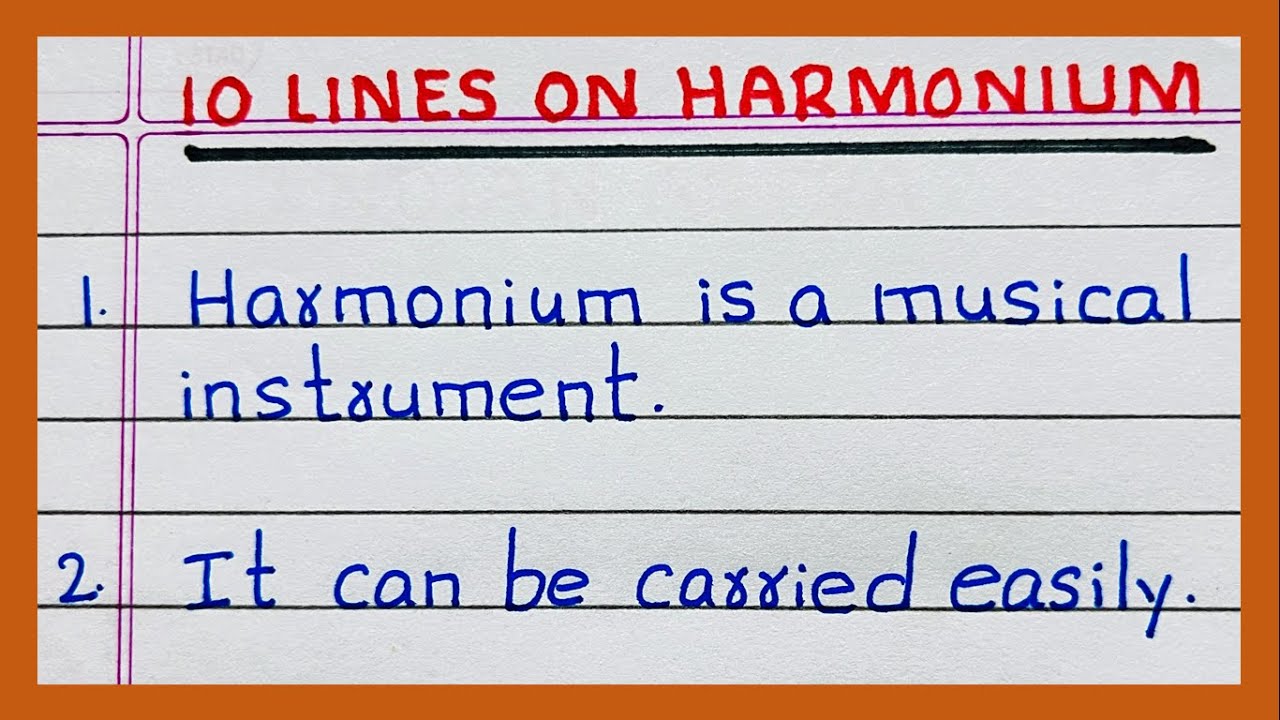 10 LINES ON HARMONIUM
1. Harmonium is a musical
instrument.
2. It can be carried easily.